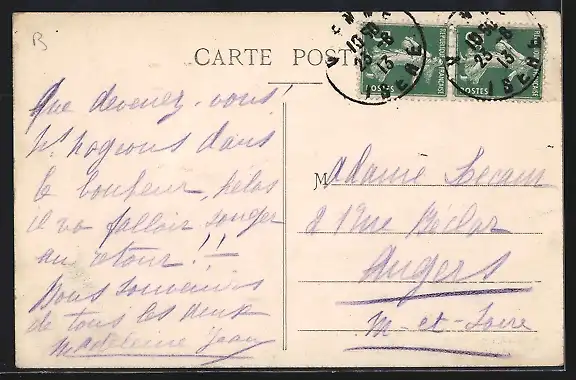 B
CARTE POSTALE
VIENNE
18 50
23-8
13
ISERE
REPUBLIQUE FRANÇAISE
POSTES
Que devenez-vous!
Ns nageons dans
le bonheur, hélas
il va falloir songer
au retour!!
Bons souvenirs
de tous les deux
Madeleine Jean
Madame
Rue Béclar
Angers
M-et-Loire